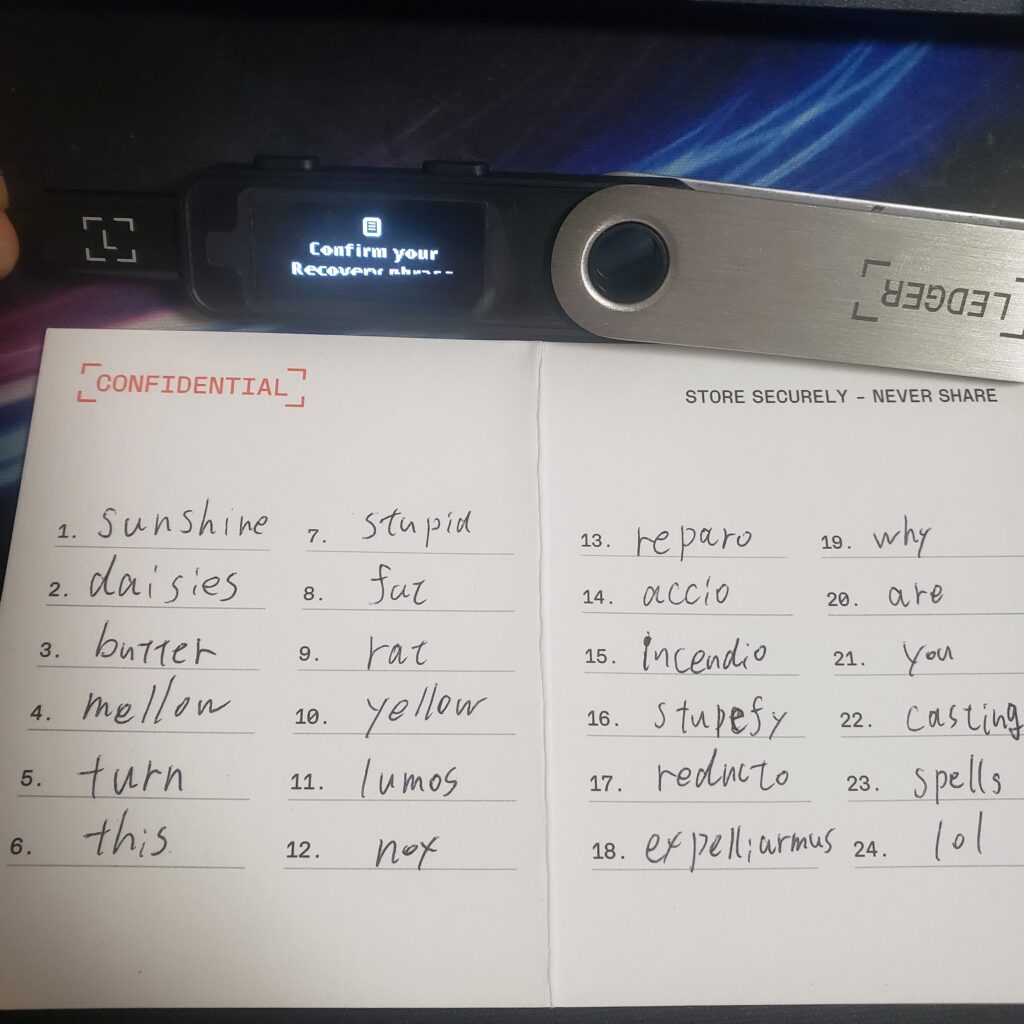 L
Confirm your
Recovery phrase
LEDGER
CONFIDENTIAL
STORE SECURELY - NEVER SHARE
1. sunshine
2. daisies
3. butter
4. mellow
5. turn
6. this
7. stupid
8. fat
9. rat
10. yellow
11. lumos
12. nox
13. reparo
14. accio
15. incendio
16. stupefy
17. reducto
18. expelliarmus
19. why
20. are
21. you
22. casting
23. spells
24. lol